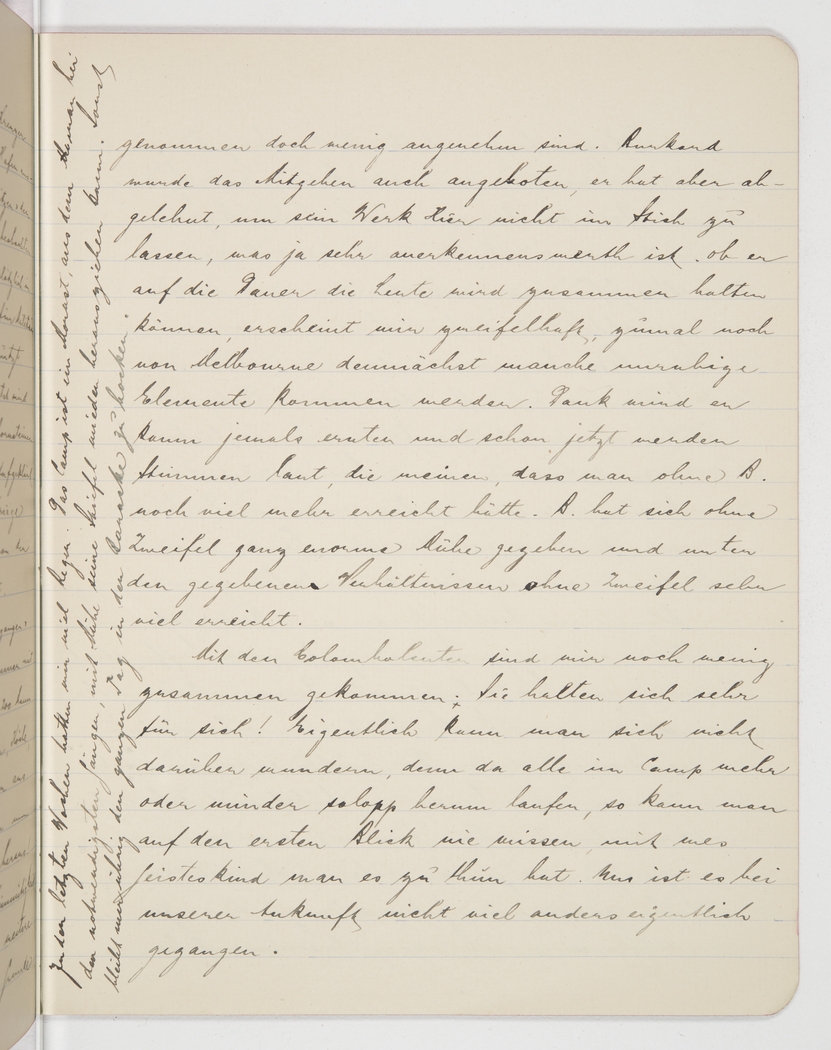 genommen doch wenig angenehm sind. Burkard
wurde das Mitgehen auch angeboten, er hat aber ab-
gelehnt, um sein Werk hier nicht im Stich zu
lassen, was ja sehr anerkennenswerth ist. ob er
auf die Dauer die Leute wird zusammen halten
können, erscheint mir zweifelhaft, zumal noch
von Melbourne demnächst manche unruhige
Elemente kommen werden. Dank wird er
kaum jemals ernten und schon jetzt werden
Stimmen laut, die meinen, dass man ohne B.
noch viel mehr erreicht hätte. B. hat sich ohne
Zweifel ganz enorme Mühe gegeben und unter
den gegebenen Verhältnissen ohne Zweifel sehr
viel erreicht.
Mit den Colomboleuten sind wir noch wenig
zusammen gekommen; Sie halten sich sehr
für sich! Eigentlich kann man sich nicht
darüber wundern, denn da alle im Camp mehr
oder minder salopp herum laufen, so kann man
auf den ersten Blick nie wissen, mit wes
Geisteskind man es zu thun hat. Uns ist es bei
unserer Ankunft nicht viel anders eigentlich
gegangen.
In den letzten Wochen hatten wir viel Regen. Das Camp ist im Morast, aus dem man bei
den notwendigsten Gängen, mit Mühe seine Stiefel wieder herausziehen kann. Sonst
bleibt nur übrig den ganzen Tag in der Baracke zu hocken.